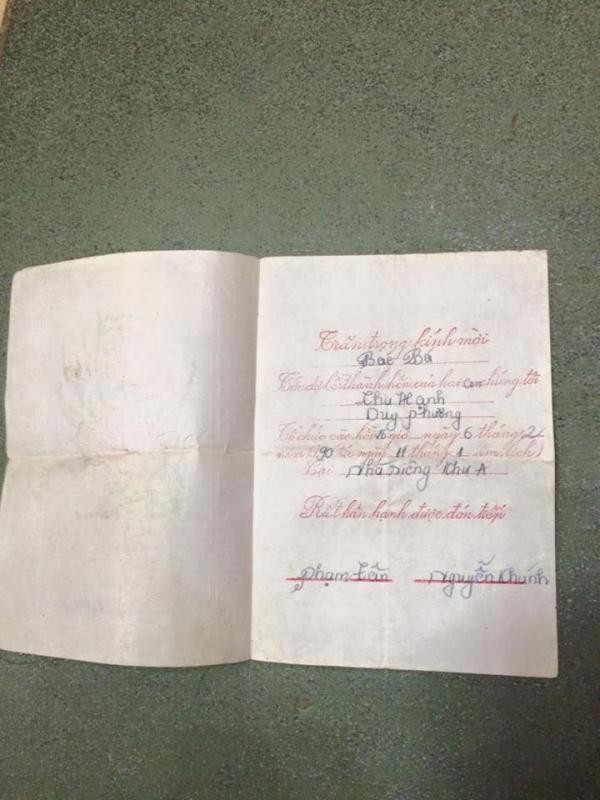 Trân trọng kính mời
Bác Bá
Tới dự lễ thành hôn của hai con chúng tôi
Thu Hạnh
Duy Phương
Tổ chức vào hồi 15 giờ ngày 6 tháng 2
năm 1990 tức ngày 11 tháng 1 âm lịch)
Tại Nhà riêng Khu A
Rất hân hạnh được đón tiếp
Phạm Tiến Nguyễn Khánh